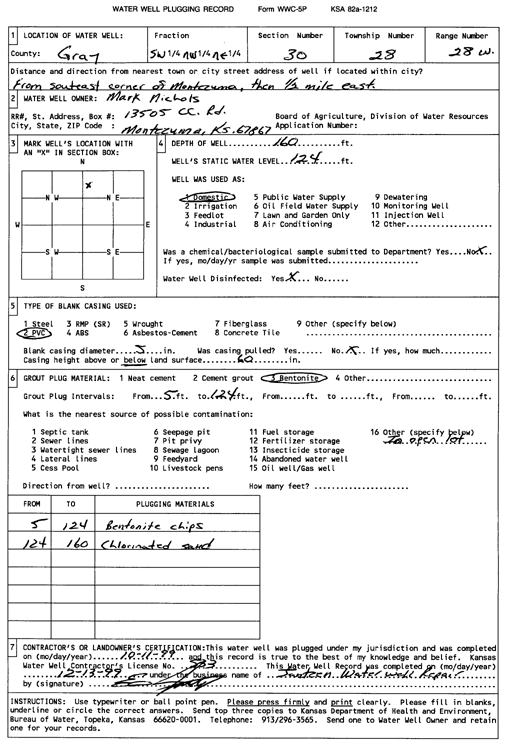 WATER WELL PLUGGING RECORD Form WWC-5P KSA 82a-1212
1 LOCATION OF WATER WELL: Fraction Section Number Township Number Range Number
County: Gray SW 1/4 NW 1/4 NE 1/4 30 28 28 W.
Distance and direction from nearest town or city street address of well if located within city?
From souteast corner of Montezuma, then 1/2 mile east.
2 WATER WELL OWNER: Mark Nichols
RR#, St. Address, Box #: 13505 CC. Rd. Board of Agriculture, Division of Water Resources
City, State, ZIP Code : Montezuma, KS. 67867 Application Number:
3 MARK WELL'S LOCATION WITH AN "X" IN SECTION BOX:
N
X
N W N E
W E
S W S E
S
4 DEPTH OF WELL......160..........ft.
WELL'S STATIC WATER LEVEL..124....ft.
WELL WAS USED AS:
1 Domestic 5 Public Water Supply 9 Dewatering
2 Irrigation 6 Oil Field Water Supply 10 Monitoring Well
3 Feedlot 7 Lawn and Garden Only 11 Injection Well
4 Industrial 8 Air Conditioning 12 Other............
Was a chemical/bacteriological sample submitted to Department? Yes....No X..
If yes, mo/day/yr sample was submitted...................
Water Well Disinfected: Yes X... No......
5 TYPE OF BLANK CASING USED:
1 Steel 3 RMP (SR) 5 Wrought 7 Fiberglass 9 Other (specify below)
2 PVC 4 ABS 6 Asbestos-Cement 8 Concrete Tile ......................
Blank casing diameter.....5....in. Was casing pulled? Yes...... No. X.. If yes, how much..........
Casing height above or below land surface......60........in.
6 GROUT PLUG MATERIAL: 1 Neat cement 2 Cement grout 3 Bentonite 4 Other............................
Grout Plug Intervals: From..5.ft. to.124ft., From......ft. to ......ft., From...... to......ft.
What is the nearest source of possible contamination:
1 Septic tank 6 Seepage pit 11 Fuel storage 16 Other (specify below)
2 Sewer lines 7 Pit privy 12 Fertilizer storage In open lot
3 Watertight sewer lines 8 Sewage lagoon 13 Insecticide storage
4 Lateral lines 9 Feedyard 14 Abandoned water well
5 Cess Pool 10 Livestock pens 15 Oil well/Gas well
Direction from well? ..................... How many feet? .....................
FROM TO PLUGGING MATERIALS
5 124 Bentonite chips
124 160 Chlorinated sand
7 CONTRACTOR'S OR LANDOWNER'S CERTIFICATION:This water well was plugged under my jurisdiction and was completed
on (mo/day/year)......10-11-99.... and this record is true to the best of my knowledge and belief. Kansas
Water Well Contractor's License No. .............. This Water Well Record was completed on (mo/day/year)
....12-13-99.... under the business name of .. Water well Repair......
by (signature) .....
INSTRUCTIONS: Use typewriter or ball point pen. Please press firmly and print clearly. Please fill in blanks,
underline or circle the correct answers. Send top three copies to Kansas Department of Health and Environment,
Bureau of Water, Topeka, Kansas 66620-0001. Telephone: 913/296-3565. Send one to Water Well Owner and retain
one for your records.